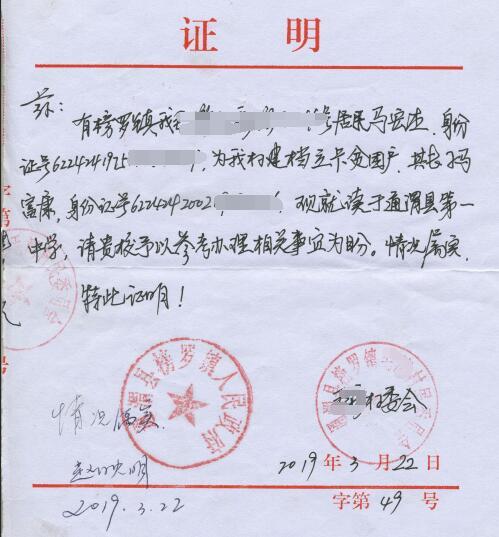 证 明
兹:
有榜罗镇我 号居民马宏 身份
证号6224241925 ,为我村建档立卡贫困户,其长
富康,身份证号6224242002 ,现就读于通渭县第一
中学,请贵校予以参考办理相关事宜为盼。情况属实,
特此证明!
通渭县榜罗镇人民政府
县榜罗镇 村 委 会
村委会
情况属实
2019 年 3 月 22 日
2019.3.22
字第 49 号
字第
号